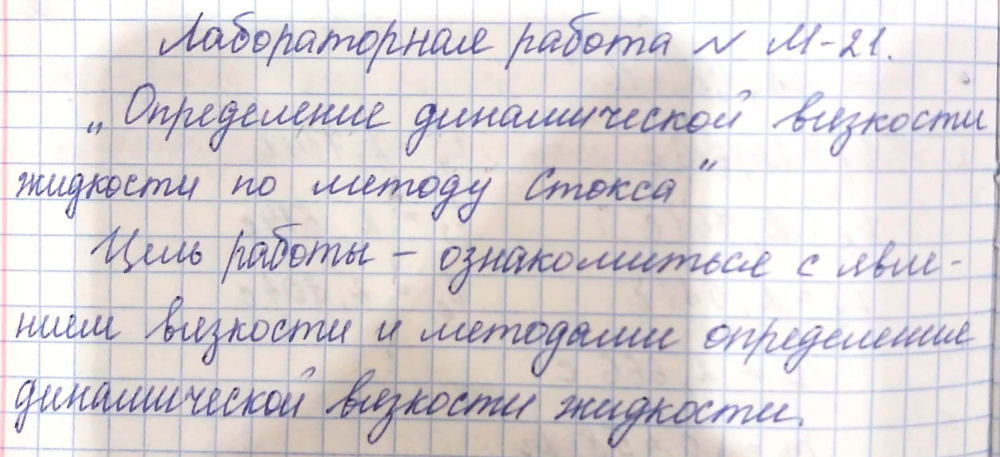 Лабораторная работа № М-21.
„Определение динамической вязкости
жидкости по методу Стокса"
Цель работы – ознакомиться с явле-
нием вязкости и методами определение
динамической вязкости жидкости.